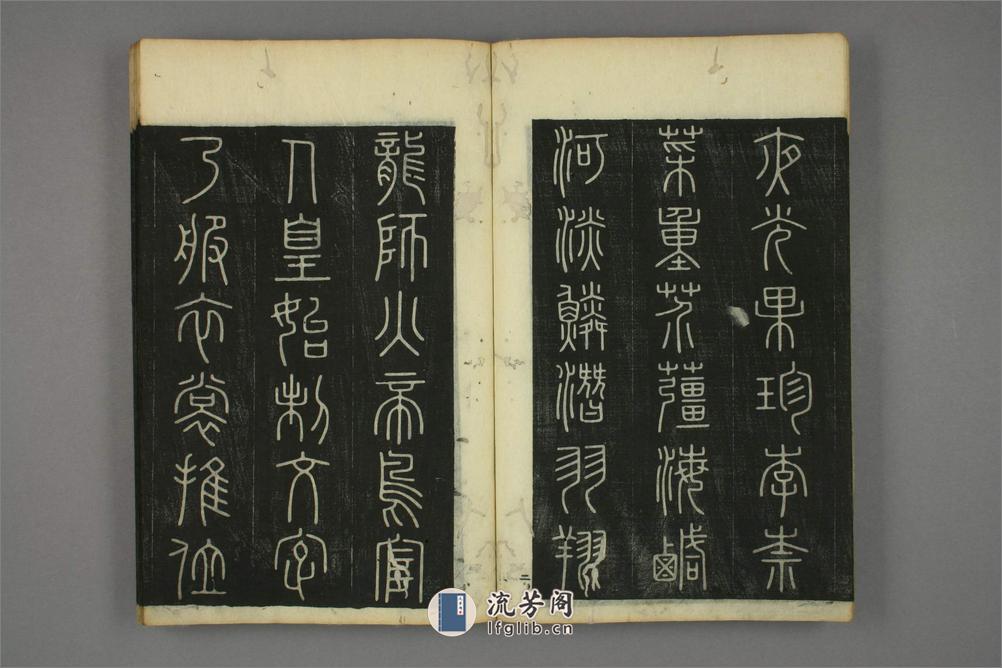 夜光果珍李柰
菜重芥薑海鹹
河淡鱗潛羽翔
龍師火帝鳥官
人皇始制文字
乃服衣裳推位
二
流芳阁
lfglib.cn